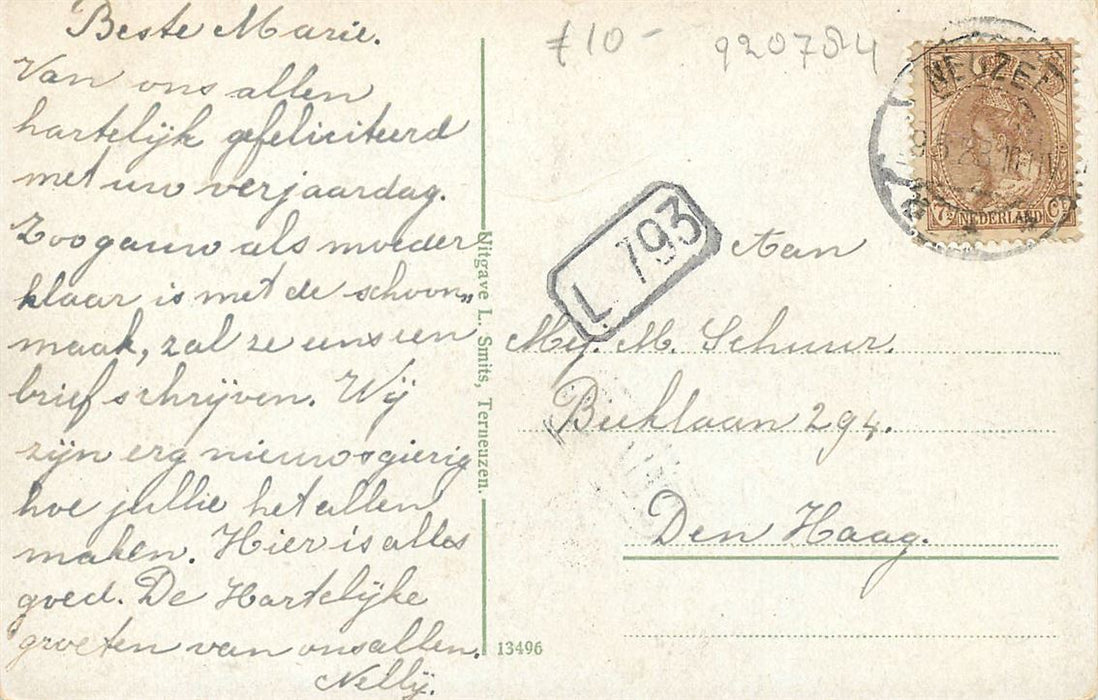 Beste Marie.
Van ons allen
hartelijk gefeliciteerd
met uw verjaardag.
Zoo gauw als moeder
klaar is met de schoon„
maak, zal ze eens een
brief schrijven. Wij
zijn erg nieuwsgierig
hoe jullie het allen
maken. Hier is alles
goed. De Hartelijke
groeten van ons allen.
Nellij.
Uitgave L. Smits, Terneuzen.
13496
£10-
920784
L 793
NEUZEN
7½ NEDERLAND Ct
Aan
Mej. M. Schuur.
Beeklaan 294.
Den Haag.